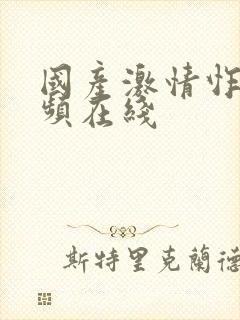 國產激情性
頻在綫
斯特里克蘭德